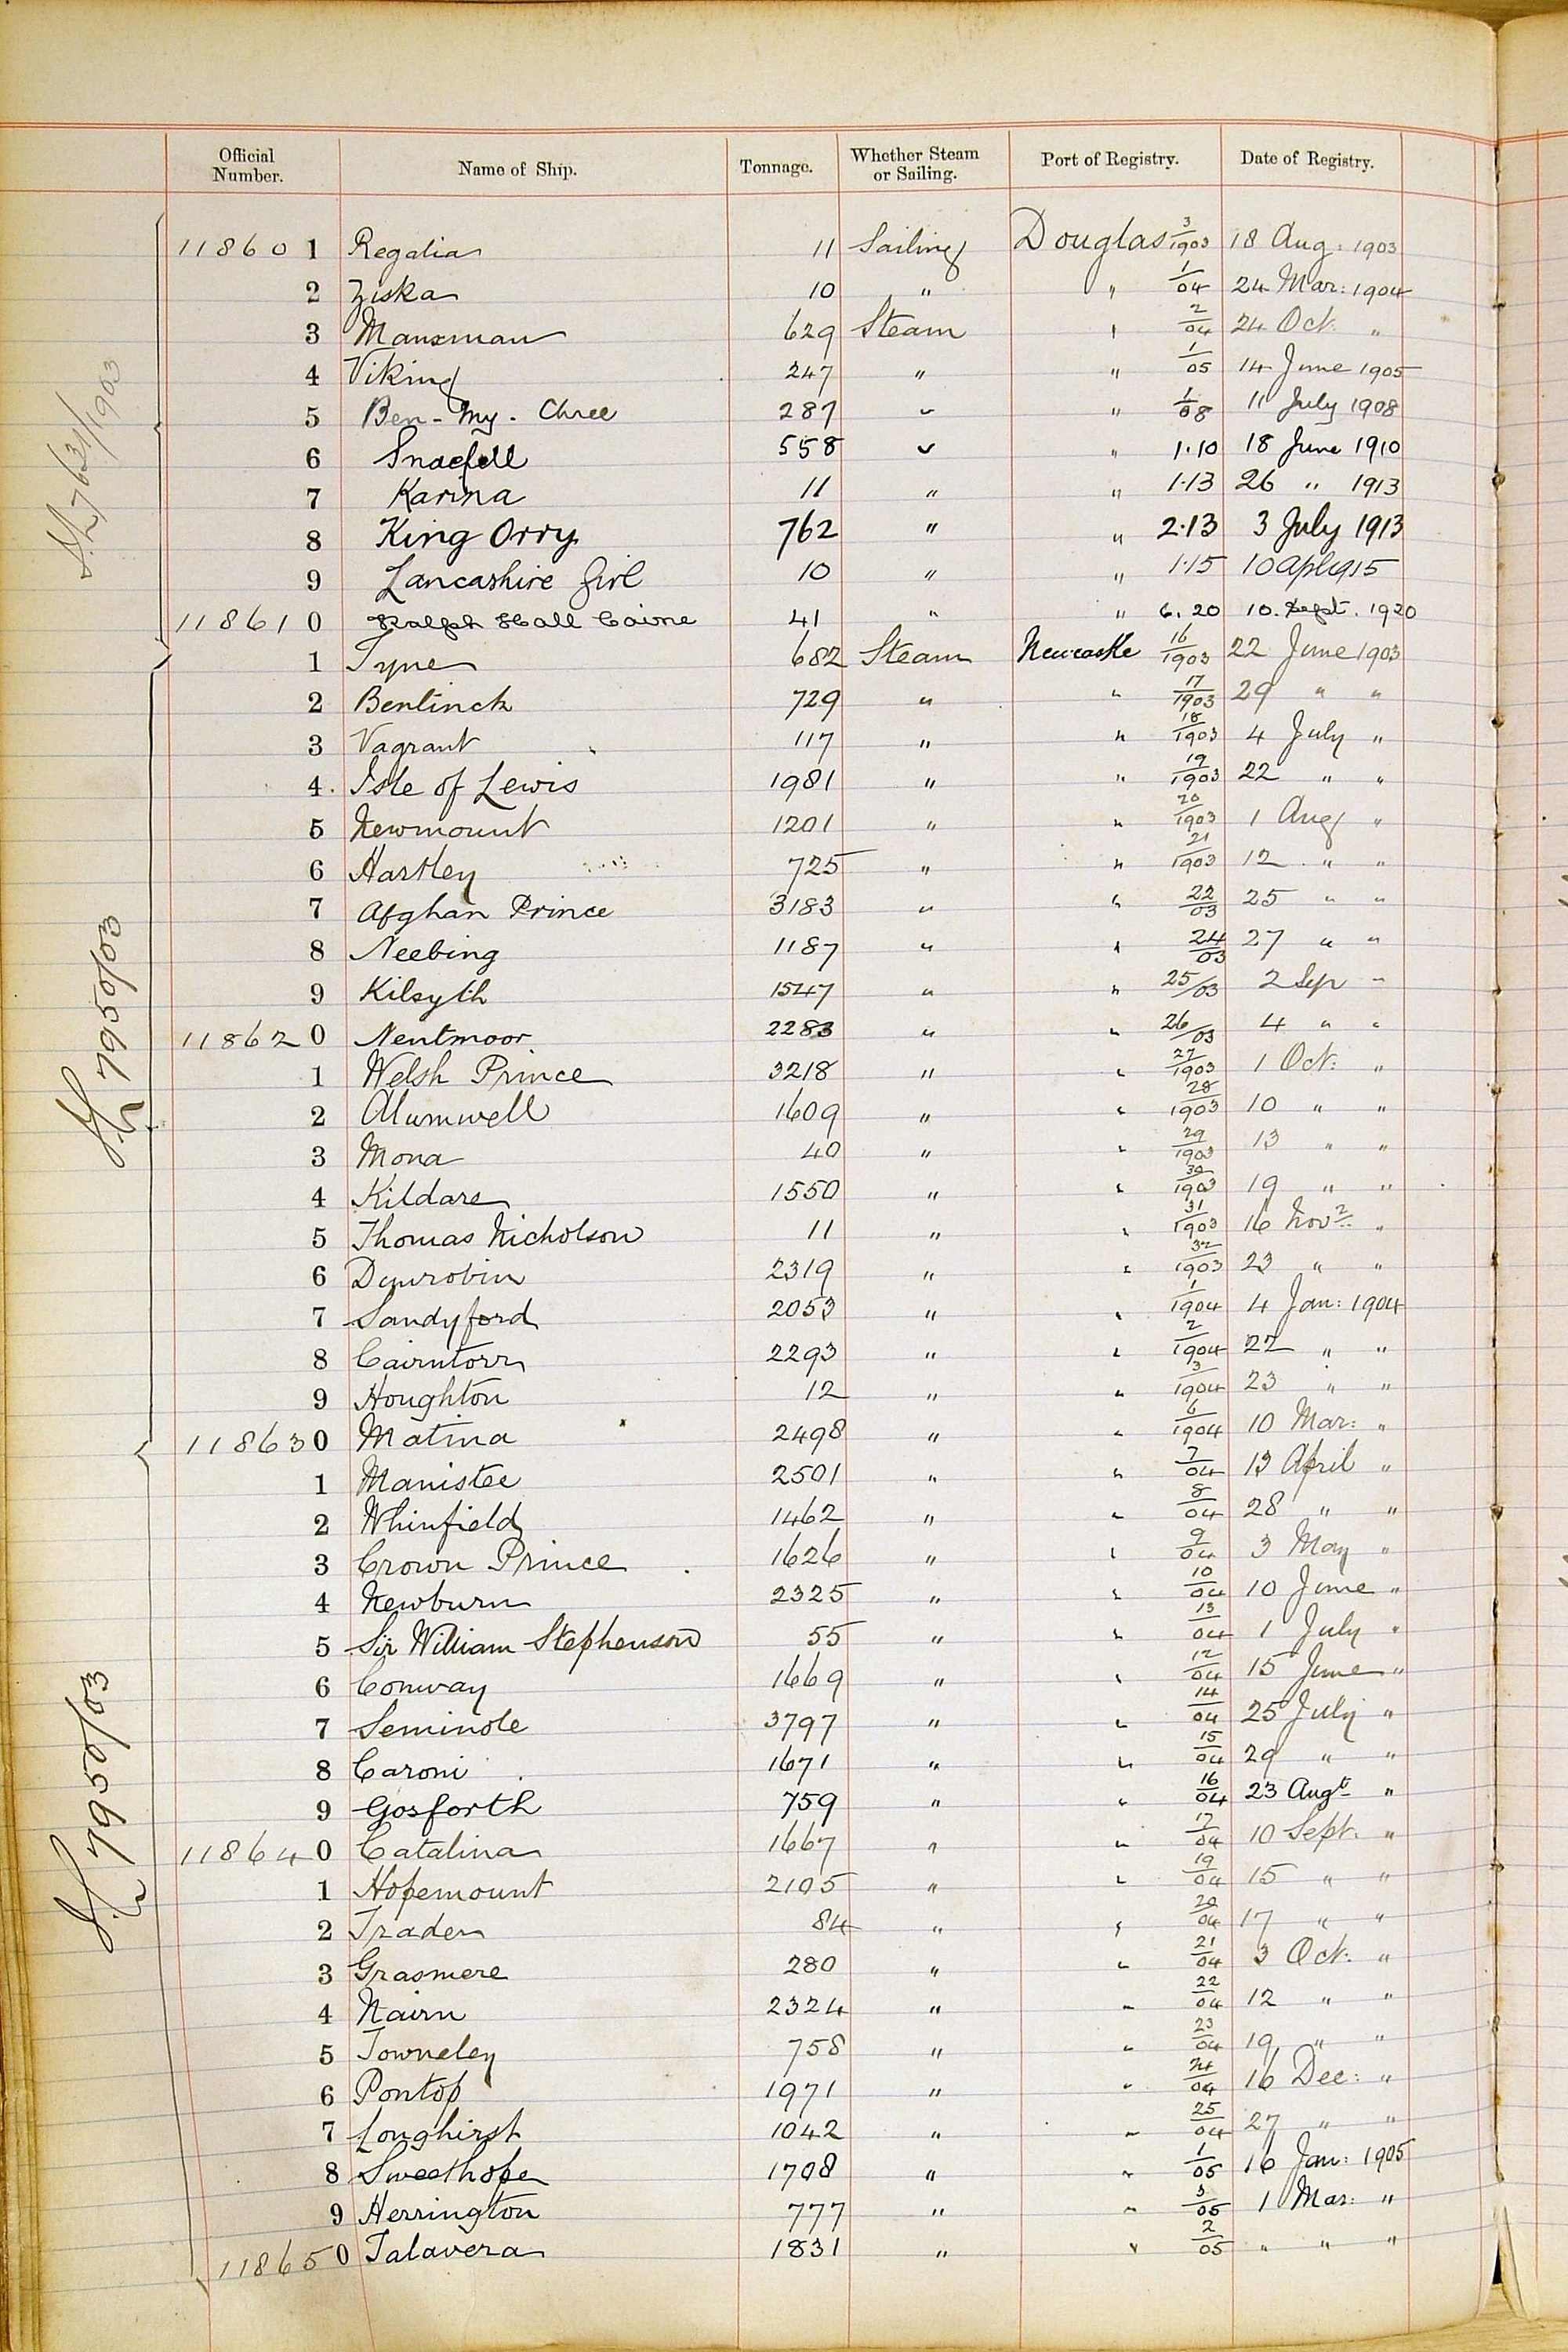 Official Number. Name of Ship. Tonnage. Whether Steam or Sailing. Port of Registry. Date of Registry.
118601 Regalia 11 Sailing Douglas 3/1903 18 Aug: 1903
2 Ziska 10 " " 1/04 24 Mar: 1904
3 Manxman 629 Steam " 2/04 24 Oct: "
4 Viking 247 " " 1/05 14 June 1905
5 Ben-My-Chree 287 " " 1/08 11 July 1908
6 Snaefell 558 " " 1.10 18 June 1910
7 Karina 11 " " 1.13 26 " 1913
8 King Orry 762 " " 2.13 3 July 1913
9 Lancashire Girl 10 " " 1.15 10 Apl 1915
118610 Ralph Hall Caine 41 " " 6.20 10. Sept. 1920
1 Tyne 682 Steam Newcastle 16/1903 22 June 1903
2 Bentinck 729 " " 17/1903 29 " "
3 Vagrant 117 " " 18/1903 4 July "
4 Isle of Lewis 1981 " " 19/1903 22 " "
5 Newmount 1201 " " 20/1903 1 Aug "
6 Hartley 725 " " 21/1903 12 " "
7 Afghan Prince 3183 " " 22/03 25 " "
8 Neebing 1187 " " 24/03 27 " "
9 Kilsyth 1547 " " 25/03 2 Sep "
118620 Nentmoor 2283 " " 26/03 4 " "
1 Welsh Prince 3218 " " 27/1903 1 Oct: "
2 Alumwell 1609 " " 28/1903 10 " "
3 Mona 40 " " 29/1903 13 " "
4 Kildare 1550 " " 30/1903 19 " "
5 Thomas Nicholson 11 " " 31/1903 16 Novr "
6 Dunrobin 2319 " " 32/1903 23 " "
7 Sandyford 2053 " " 1/1904 4 Jan: 1904
8 Cairntorr 2293 " " 2/1904 22 " "
9 Houghton 12 " " 3/1904 23 " "
118630 Matina 2498 " " 6/1904 10 Mar: "
1 Manistee 2501 " " 7/04 13 April "
2 Whinfield 1462 " " 8/04 28 " "
3 Crown Prince 1626 " " 9/04 3 May "
4 Newburn 2325 " " 10/04 10 June "
5 Sir William Stephenson 55 " " 13/04 1 July "
6 Conway 1669 " " 12/04 15 June "
7 Seminole 3797 " " 14/04 25 July "
8 Caroni 1671 " " 15/04 29 " "
9 Gosforth 759 " " 16/04 23 Augt "
118640 Catalina 1667 " " 17/04 10 Sept: "
1 Hopemount 2105 " " 19/04 15 " "
2 Trader 84 " " 20/04 17 " "
3 Grasmere 280 " " 21/04 3 Oct: "
4 Nairn 2324 " " 22/04 12 " "
5 Towneley 758 " " 23/04 19 " "
6 Pontop 1971 " " 24/04 16 Dec: "
7 Longhirst 1042 " " 25/04 27 " "
8 Sweethope 1708 " " 1/05 16 Jan: 1905
9 Herrington 777 " " 3/05 1 Mar: "
118650 Talavera 1831 " " 2/05 " " "
7631/1903
7950/03
7950/03